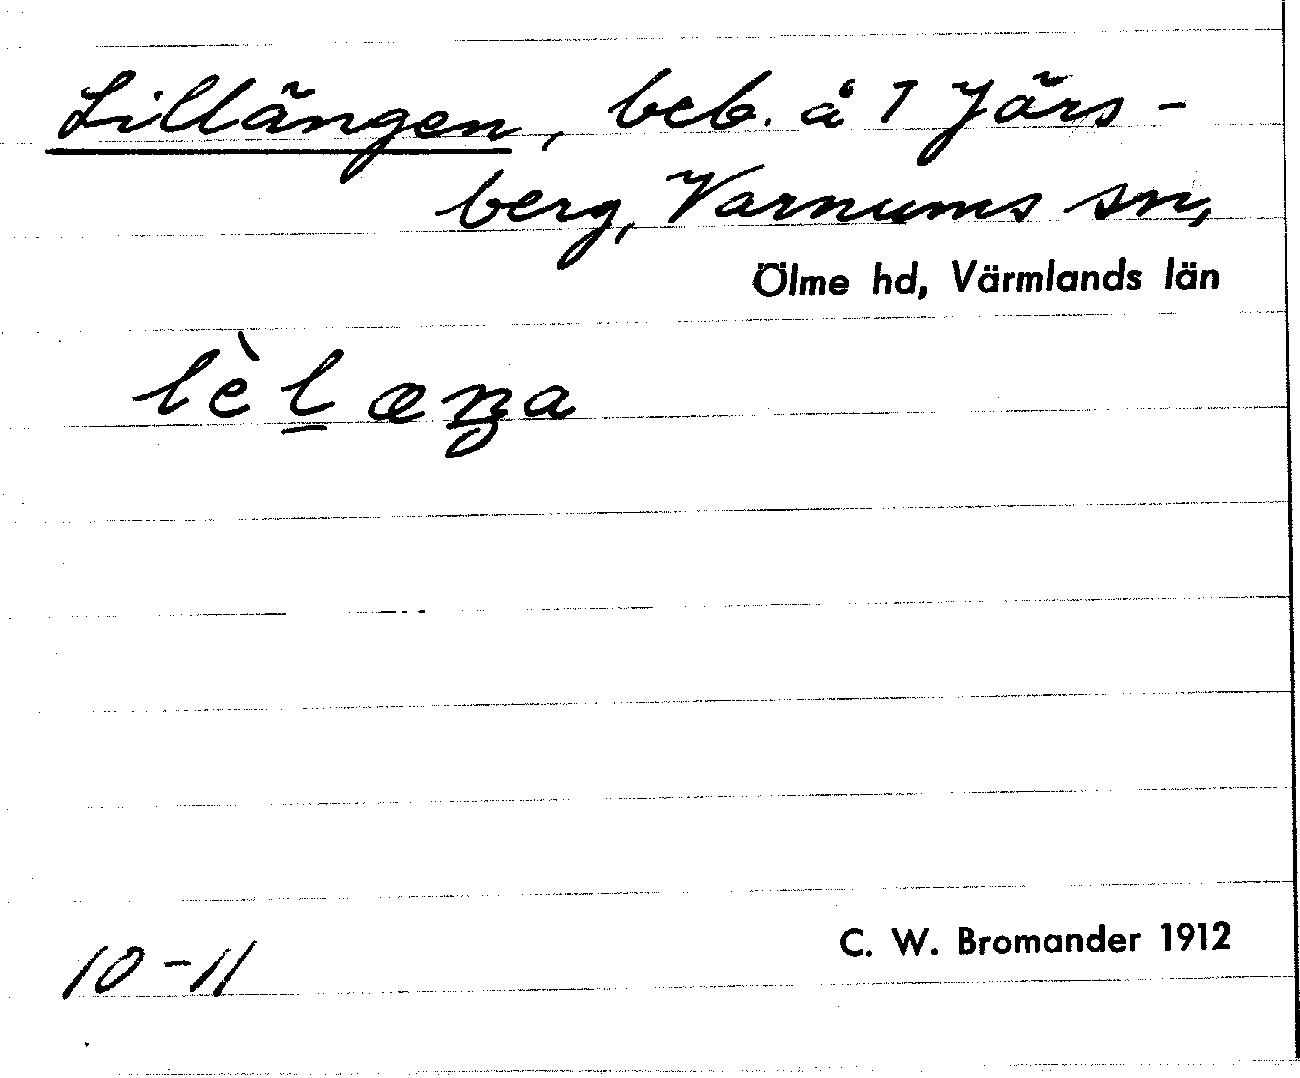 Lillängen, beb. å 7 Järs-
berg, Varnums sn,
Ölme hd, Värmlands län
lèl̲æŋa
10-11
C. W. Bromander 1912